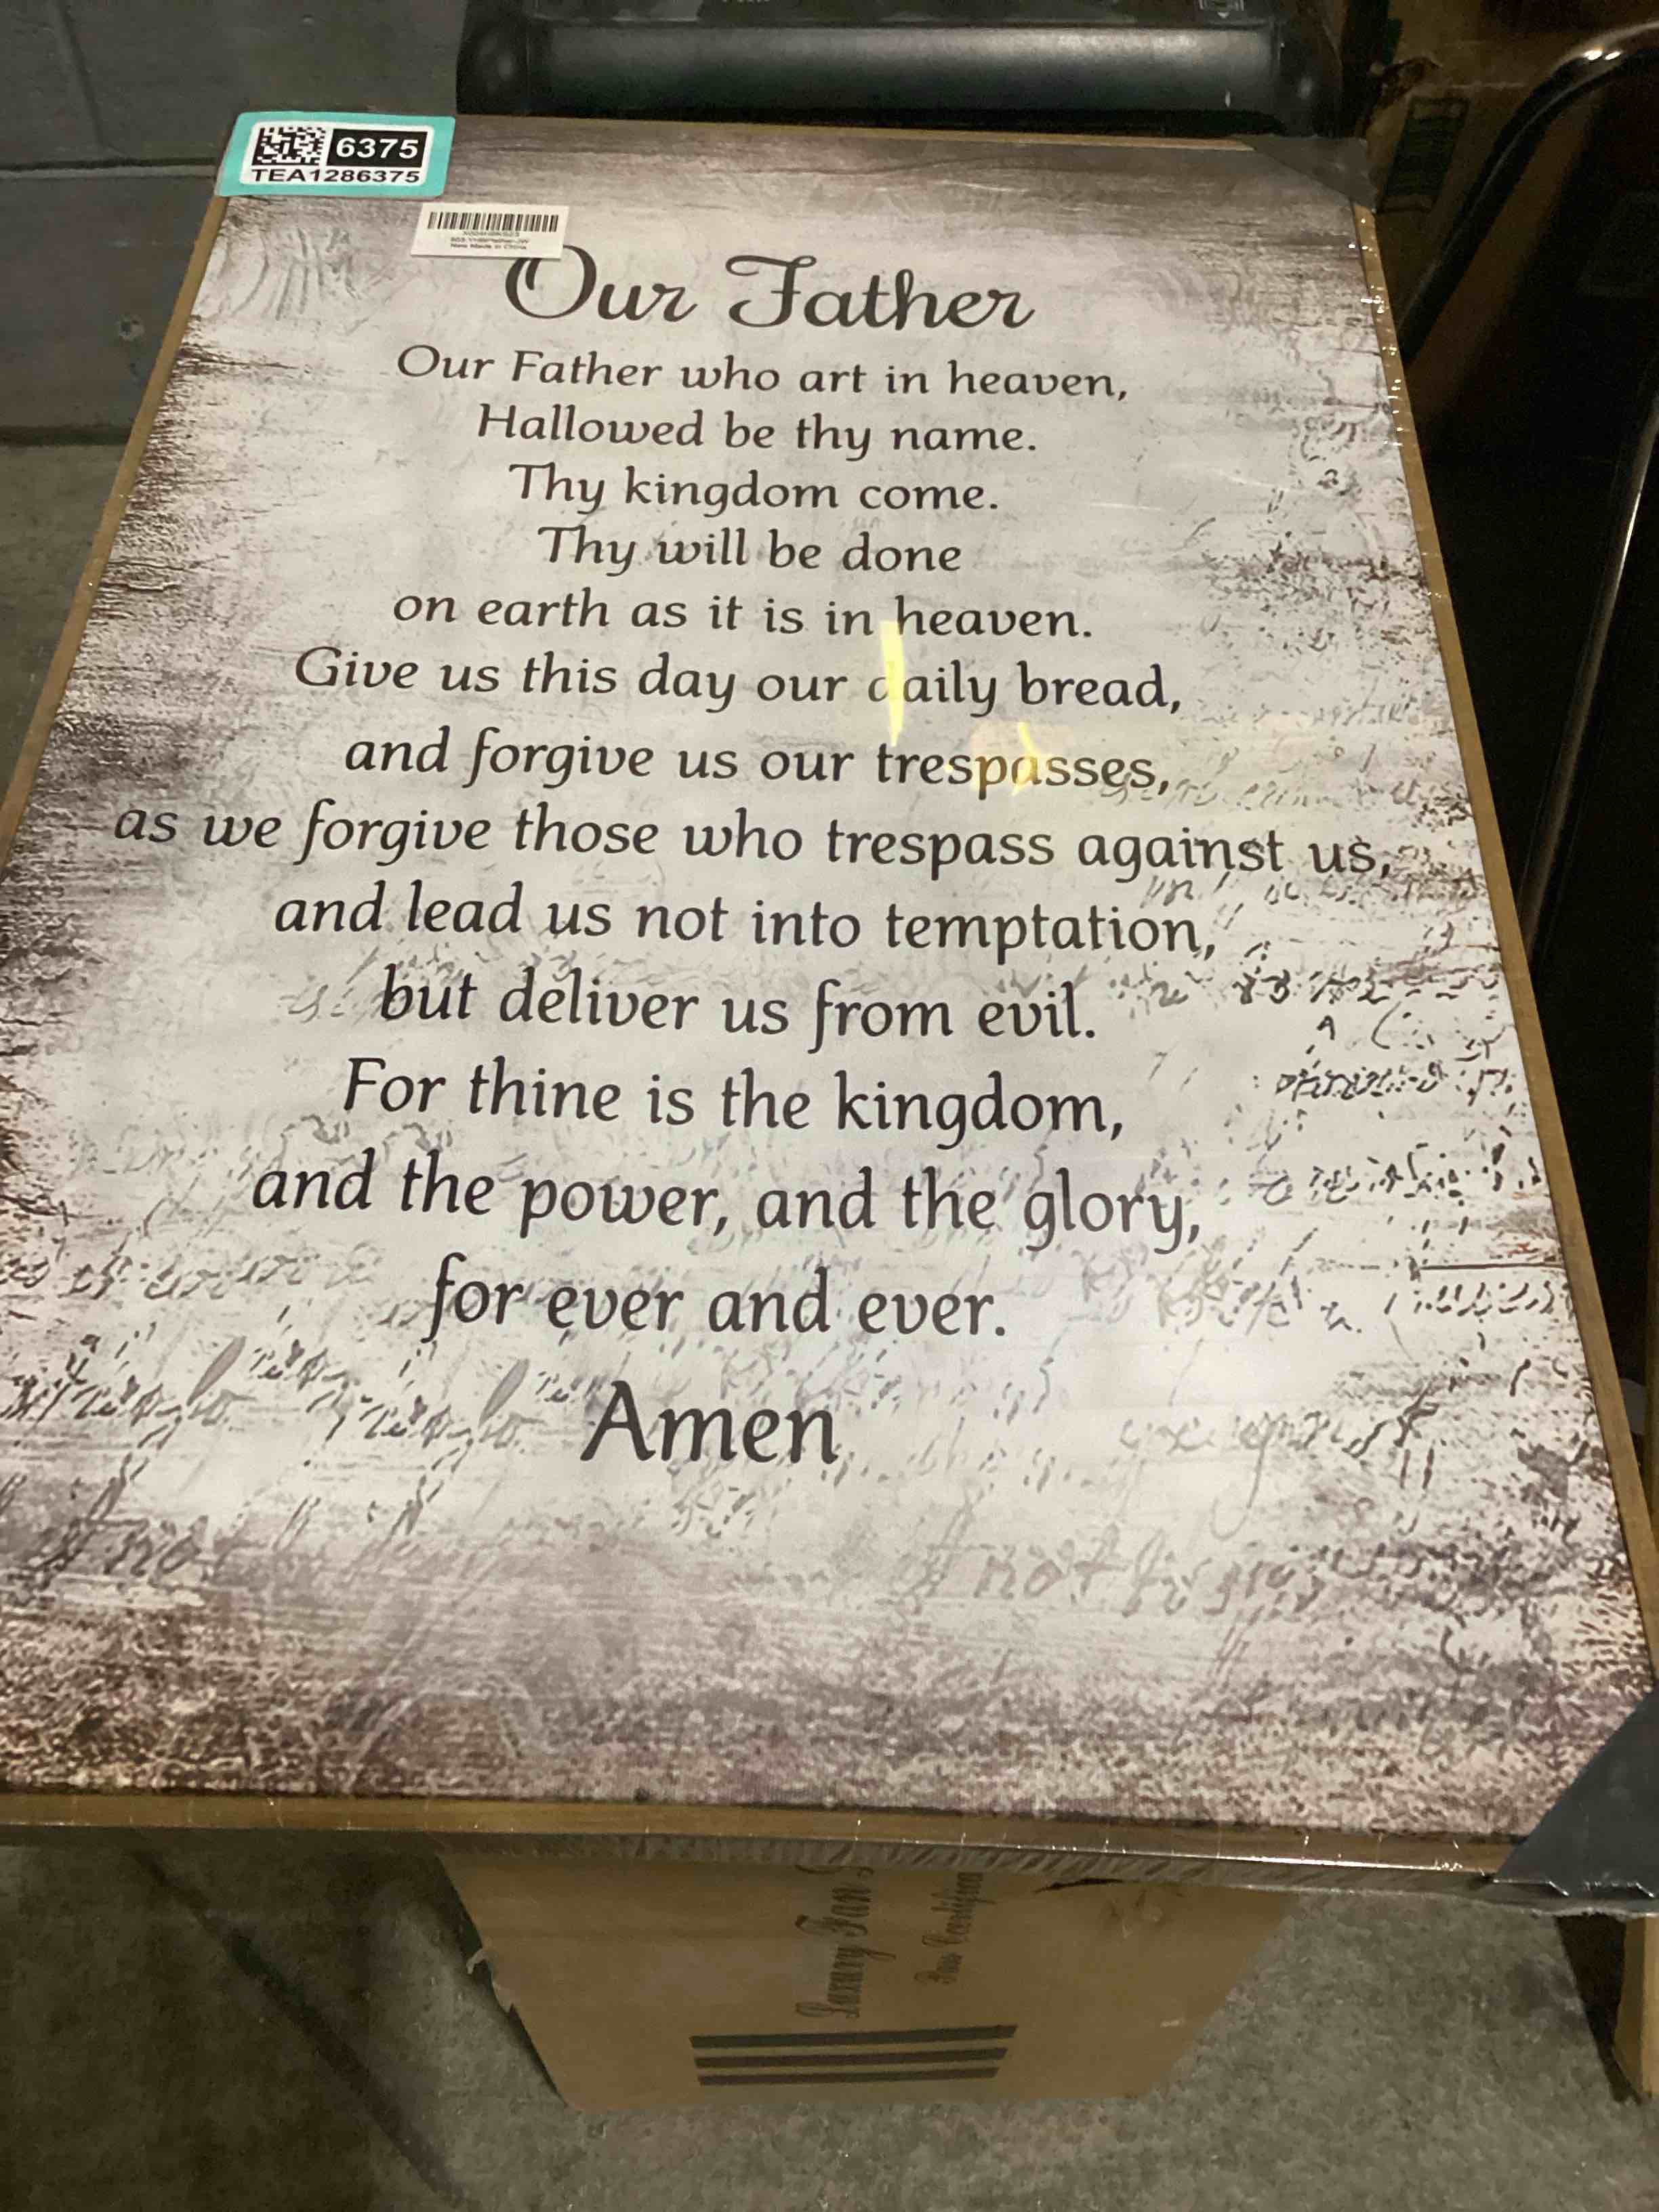 6375
TEA1286375
New Made in China
Our Father
Our Father who art in heaven,
Hallowed be thy name.
Thy kingdom come.
Thy will be done
on earth as it is in heaven.
Give us this day our daily bread,
and forgive us our trespasses,
as we forgive those who trespass against us,
and lead us not into temptation,
but deliver us from evil.
For thine is the kingdom,
and the power, and the glory,
for ever and ever.
Amen
Luxury Fan